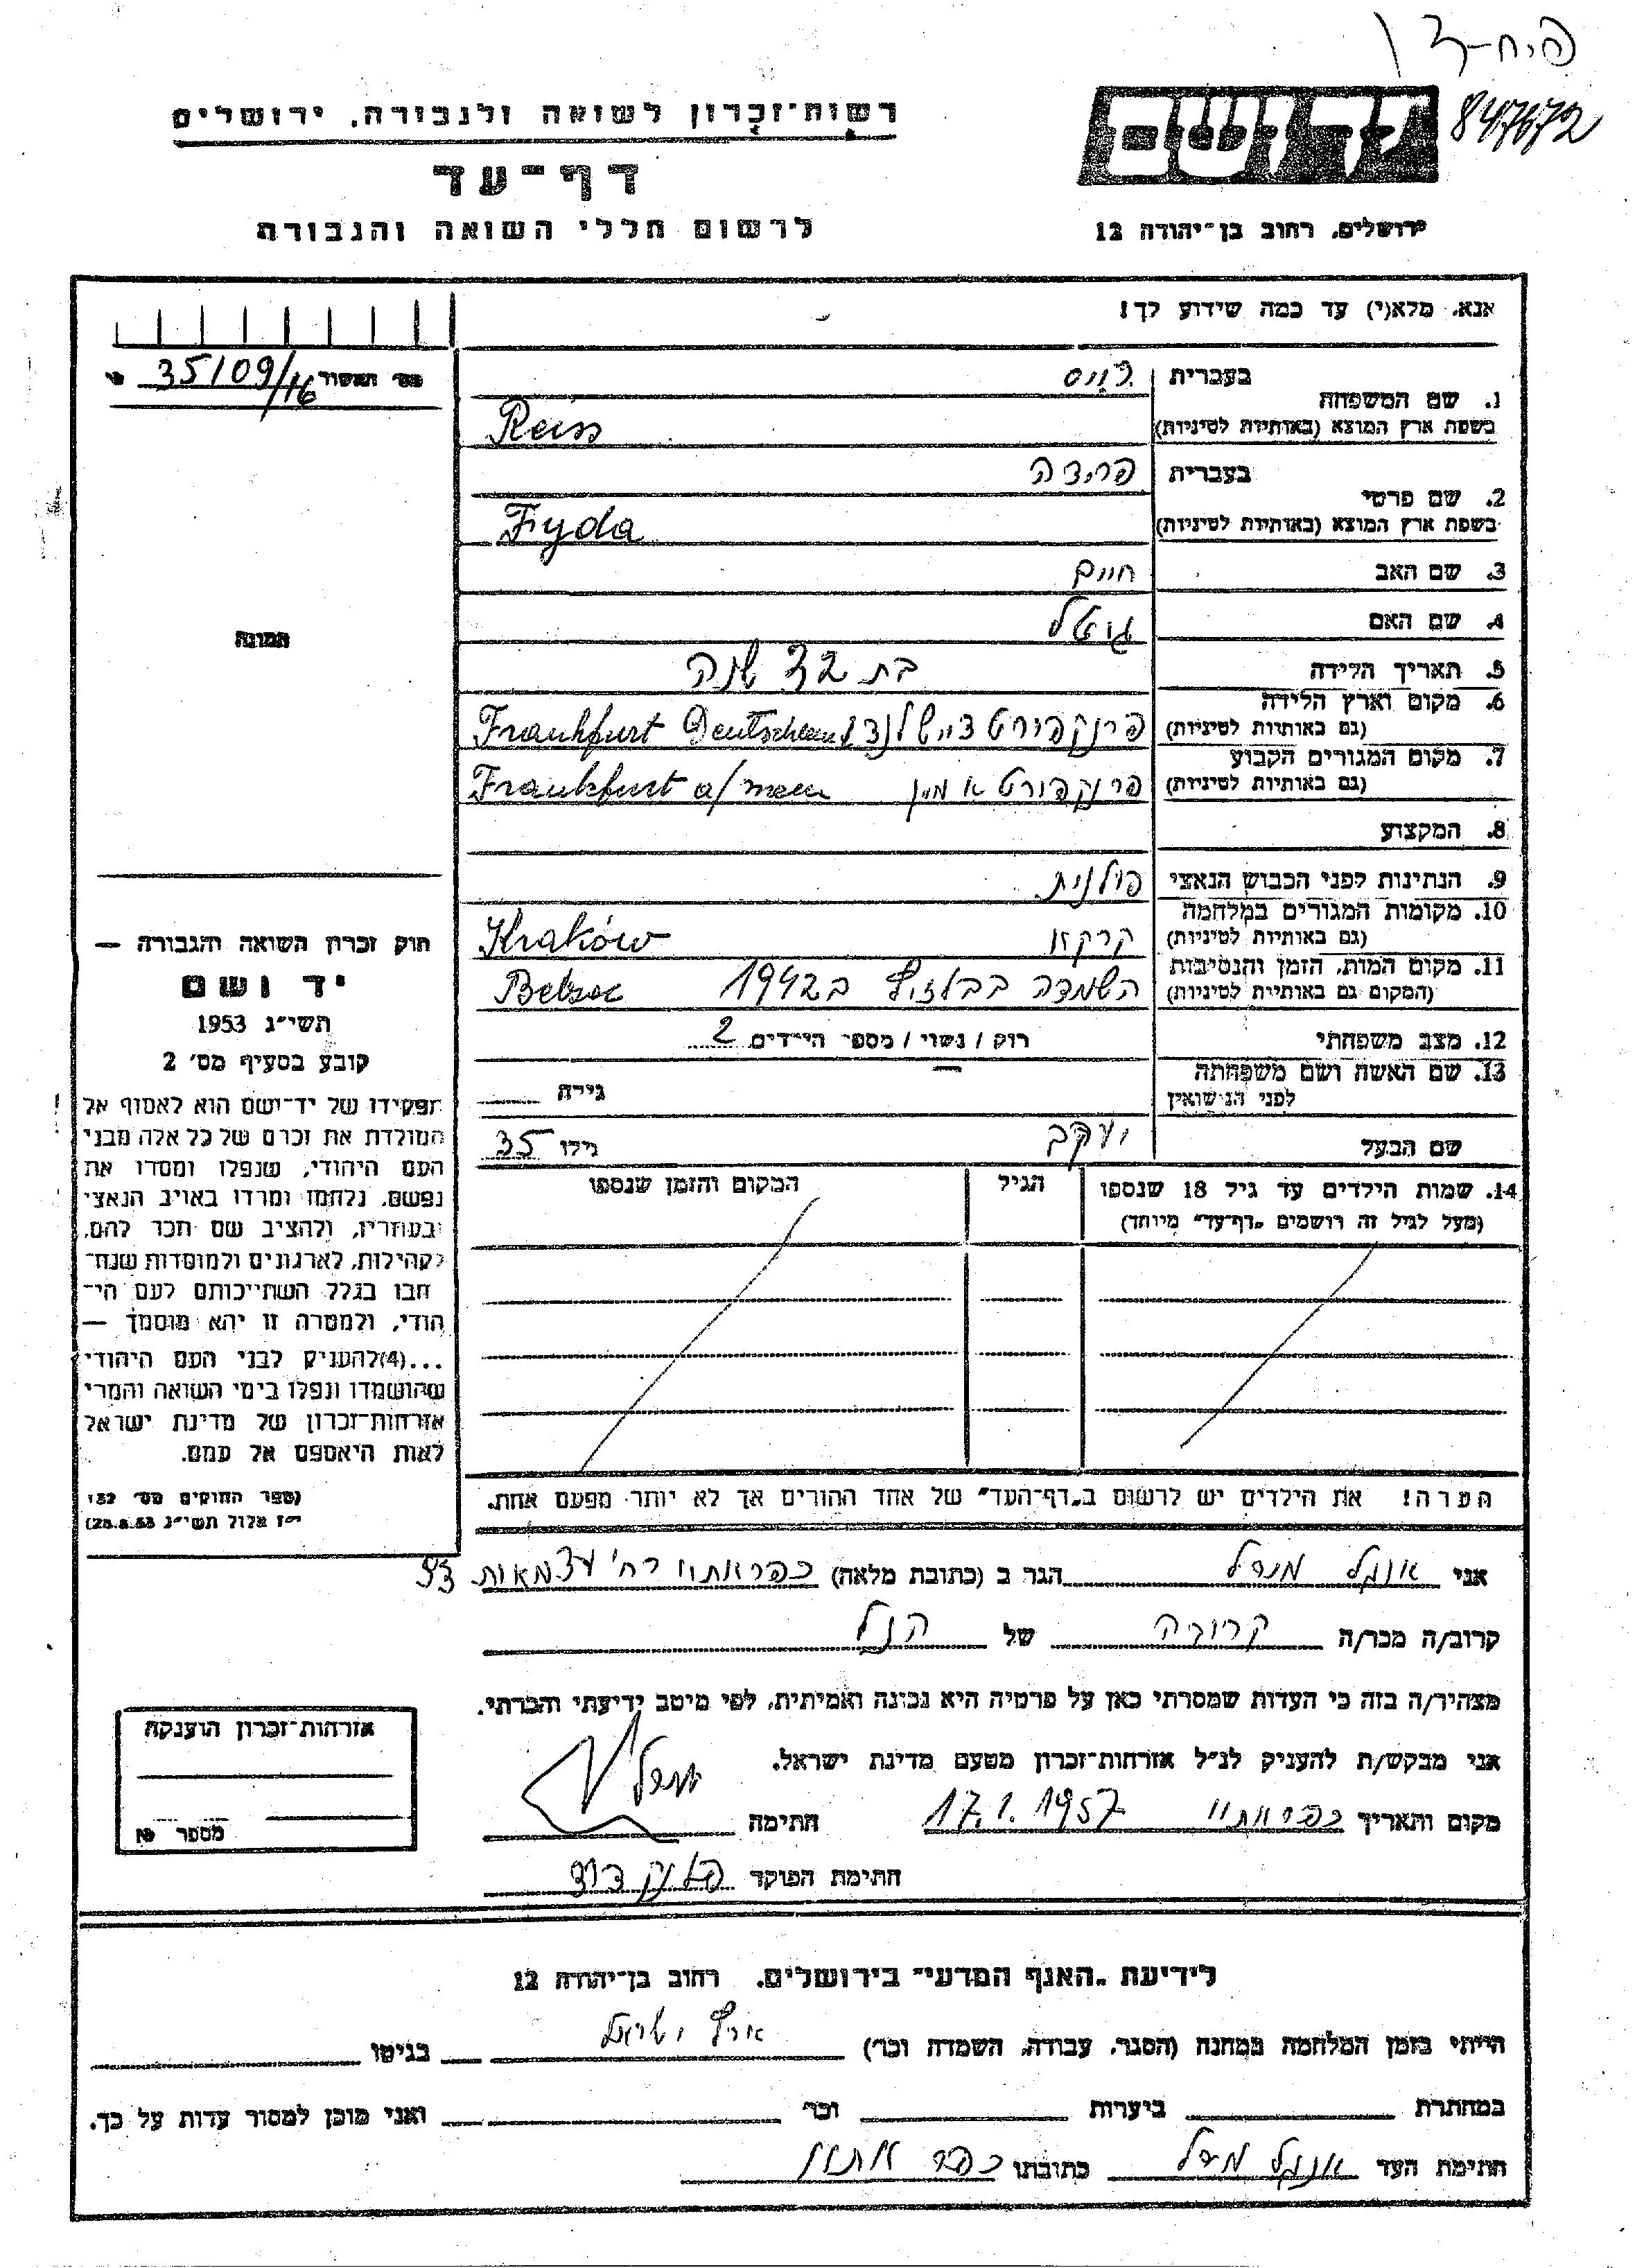 847672
רשות־זכרון לשואה ולגבורה, ירושלים
יד ושם
דף־עד
לרשום חללי השואה והגבורה
ירושלים, רחוב בן־יהודה 12
אנא, מלא(י) עד כמה שידוע לך!
35109/16
1. שם המשפחה
בעברית רייס
בשפת ארץ המוצא (באותיות לטיניות) Reiss
2. שם פרטי
בעברית פרידה
בשפת ארץ המוצא (באותיות לטיניות) Fryda
3. שם האב חיים
4. שם האם גיטל
5. תאריך הלידה בת 32 שנה
6. מקום וארץ הלידה
(גם באותיות לטיניות) פרנקפורט דויטשלנד Frankfurt Deutschland
7. מקום המגורים הקבוע
(גם באותיות לטיניות) פרנקפורט א מיין Frankfurt a/
8. המקצוע
9. הנתינות לפני הכבוש הנאצי פולנית
10. מקומות המגורים במלחמה
(גם באותיות לטיניות) קרקוו Kraków
11. מקום המות, הזמן והנסיבות
(המקום גם באותיות לטיניות) השמדה בבלזיץ ב1942 Belzec
12. מצב משפחתי רוק / נשוי / מספר הילדים 2
13. שם האשה ושם משפחתה
לפני הנישואין גילה
שם הבעל יעקב גילו 35
14. שמות הילדים עד גיל 18 שנספו הגיל המקום והזמן שנספו
(מעל לגיל זה רושמים "דף־עד" מיוחד)
הערה! את הילדים יש לרשום ב"דף־העד" של אחד ההורים אך לא יותר מפעם אחת.
תמונה
חוק זכרון השואה והגבורה —
יד ושם
תשי״ג 1953
קובע בסעיף מס׳ 2
תפקידו של יד־ושם הוא לאסוף אל
המולדת את זכרם של כל אלה מבני
העם היהודי, שנפלו ומסרו את
נפשם, נלחמו ומרדו באויב הנאצי
ובעוזריו, ולהציב שם וזכר להם,
לקהילות, לארגונים ולמוסדות שנח־
רבו בגלל השתייכותם לעם הי־
הודי, ולמטרה זו יהא מוסמך —
...(4) להעניק לבני העם היהודי
שהושמדו ונפלו בימי השואה והמרי
אזרחות־זכרון של מדינת ישראל
לאות היאספם אל עמם.
(ספר החוקים מס׳ 132
י״ז אלול תשי״ג 28.8.53)
אני אנגל מנדל הגר ב (כתובת מלאה) כפר אתא רח׳ עצמאות 53
קרוב/ה מכר/ה קרובה של הנ״ל
מצהיר/ה בזה כי העדות שמסרתי כאן על פרטיה היא נכונה ואמיתית, לפי מיטב ידיעתי והכרתי.
אני מבקש/ת להעניק לנ״ל אזרחות־זכרון מטעם מדינת ישראל.
מקום ותאריך כפר אתא 17.1.1957 חתימה
חתימת הפוקד
אזרחות־זכרון הוענקה
מספר
לידיעת "האגף המדעי" בירושלים, רחוב בן־יהודה 12
הייתי בזמן המלחמה במחנה (הסגר, עבודה, השמדה וכו׳) ארץ ישראל בגיטו
במחתרת ביערות וכו׳ ואני מוכן למסור עדות על כך.
חתימת העד אנגל מנדל כתובתו כפר אתא